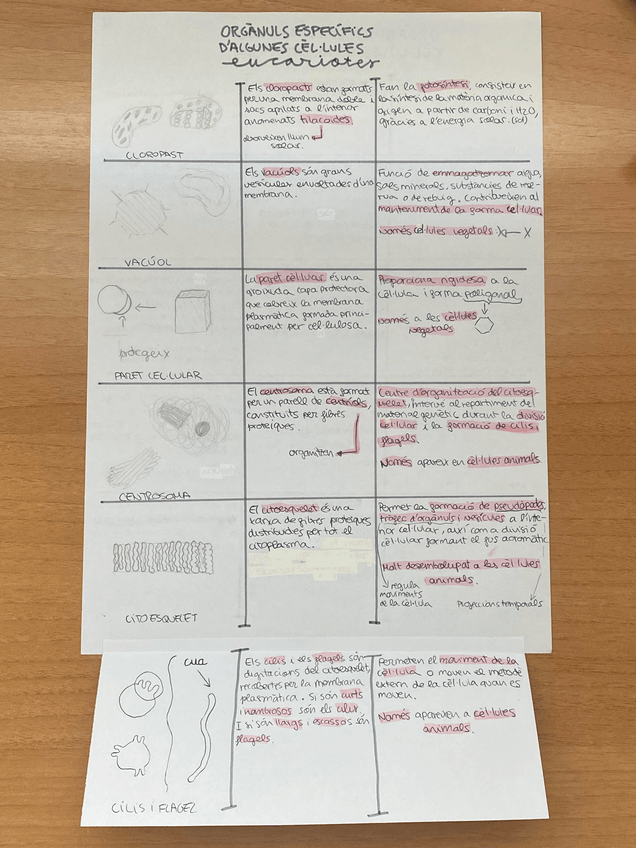 ORGÀNULS ESPECÍFICS
D'ALGUNES CÈL·LULES
eucariotes
Els cloroplasts estan formats
per una membrana doble i
sacs aplicats a l'interior
anomenats tilacoides
absorveixen llum
solar.
Fan la fotosíntesi, consisteix en
la síntesi de la matèria orgànica, i
origen a partir de carboni i H2O,
gràcies a l'energia solar. (sol)
CLOROPAST
Els vacúols són grans
vesícules envoltades d'una
membrana.
Funció de emmagatzemar aigua,
sals minerals, substàncies de reser-
va o de rebuig. Contribueixen al
manteniment de la forma cel·lular.
Només cèl·lules vegetals
VACÚOL
La paret cèl·lular és una
gruixuda capa protectora
que cobreix la membrana
plasmàtica formada princi-
palment per cel·lulosa.
Proporciona rigidesa a la
cèl·lula i forma poligonal
Només a les cèl·lules
vegetals
protegeix
PARET CEL·LULAR
El centrosoma està format
per un parell de centríols,
constituïts per fibres
proteiques.
organitzen
Centre d'organització del citoes-
quelet, intervé al repartiment del
material genètic durant la divisió
cel·lular i la formació de cilis i
flagels.
Només apareix en cèl·lules animals.
CENTROSOMA
El citoesquelet és una
xarxa de fibres proteiques
distribuïdes per tot el
citoplasma.
Permet la formació de pseudòpods,
tràfec d'orgànuls i vesícules a l'inte-
rior cel·lular, així com a divisió
cèl·lular formant el fus acromàtic
Molt desenbolupat a les cèl·lules
animals.
regula
moviments
de la cèl·lula
Projeccions temporals
CITOESQUELET
cua
Els cilis i els flagels són
digitacions del citoesquelet,
recobertes per la membrana
plasmàtica. Si són curts
i nombrosos són els cilis.
I si són llargs i escassos són
flagels.
Permeten el moviment de la
cèl·lula o moven el
extern de la cèl·lula quan es
moven.
Només apareixen a cèl·lules
animals.
CILIS I FLAGEL